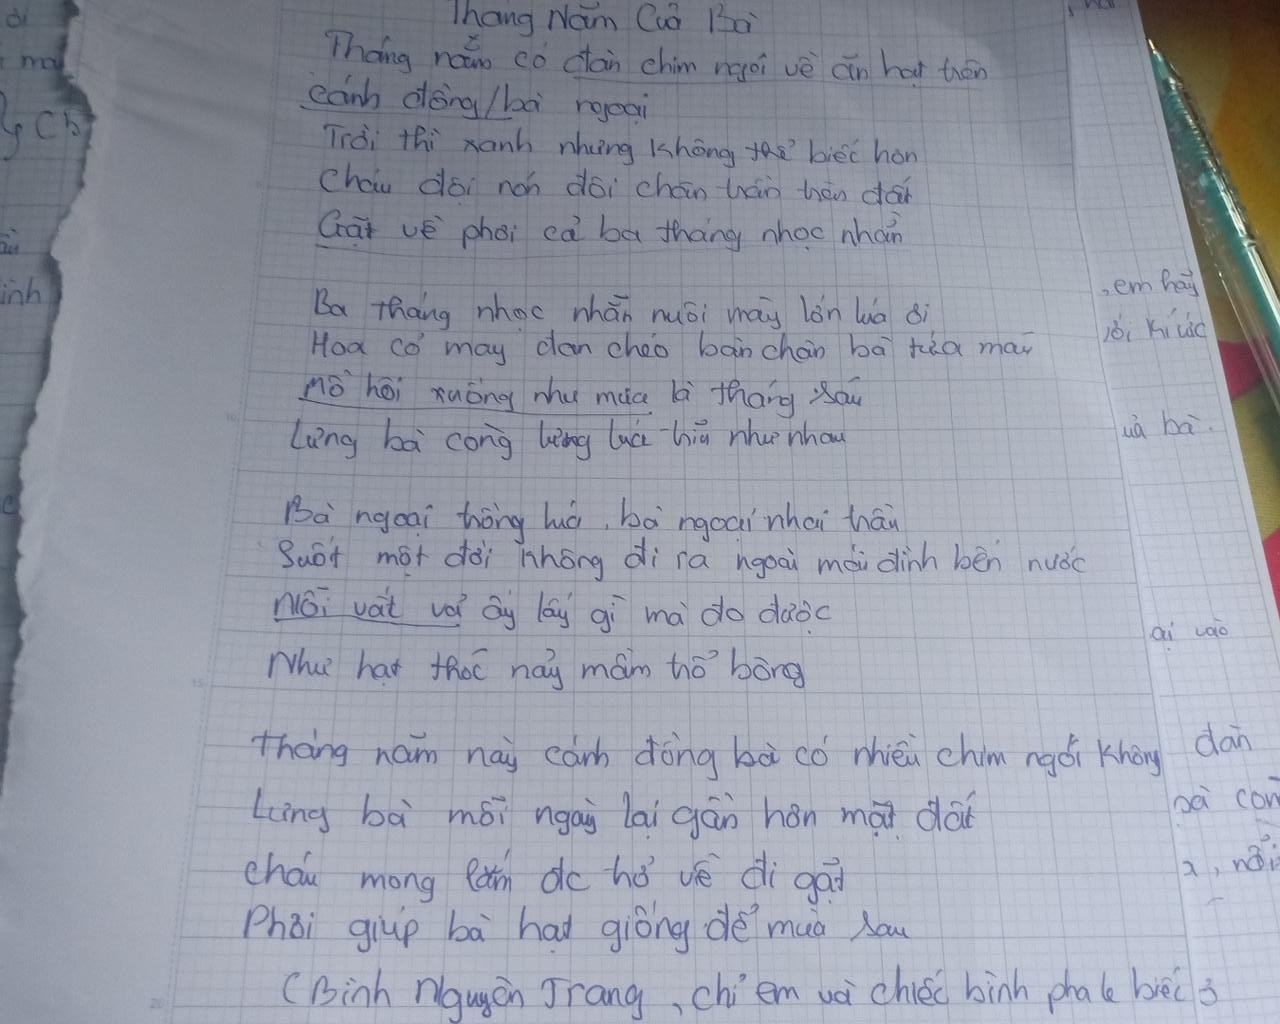 Tháng Năm Của Bà
Tháng năm có đàn chim ngói về ăn hạt trên
cánh đồng/bà ngoại
Trời thì xanh nhưng không thể biếc hơn
Cháu đội nón đôi chân trần trên đất
Gặt về phơi cả ba tháng nhọc nhằn
Ba tháng nhọc nhằn nuôi mấy lớn lúa ơi
Hoa cỏ may đan chéo bàn chân bà máu
Mồ hôi xuống như mưa tháng sáu
Lưng bà còng lưng lúa trĩu như nhau
Bà ngoại trồng lúa, bà ngoại nhai trầu
Suốt một đời không đi ra ngoài mái đình bến nước
Nỗi vất vả ấy lấy gì mà đo được
Như hạt thóc nảy mầm trổ bông
Tháng năm này cánh đồng bà có nhiều chim ngói không
Lưng bà mỗi ngày lại gần hơn mặt đất
cháu mong lắm đc hỏ về đi gặt
Phơi giúp bà hạt giống để mùa sau
(Bình Nguyên Trang, chỉ em và chiếc bình pha lê biếc)
em hãy
kí ức
uả bà.
ại vào
đàn
bà còn